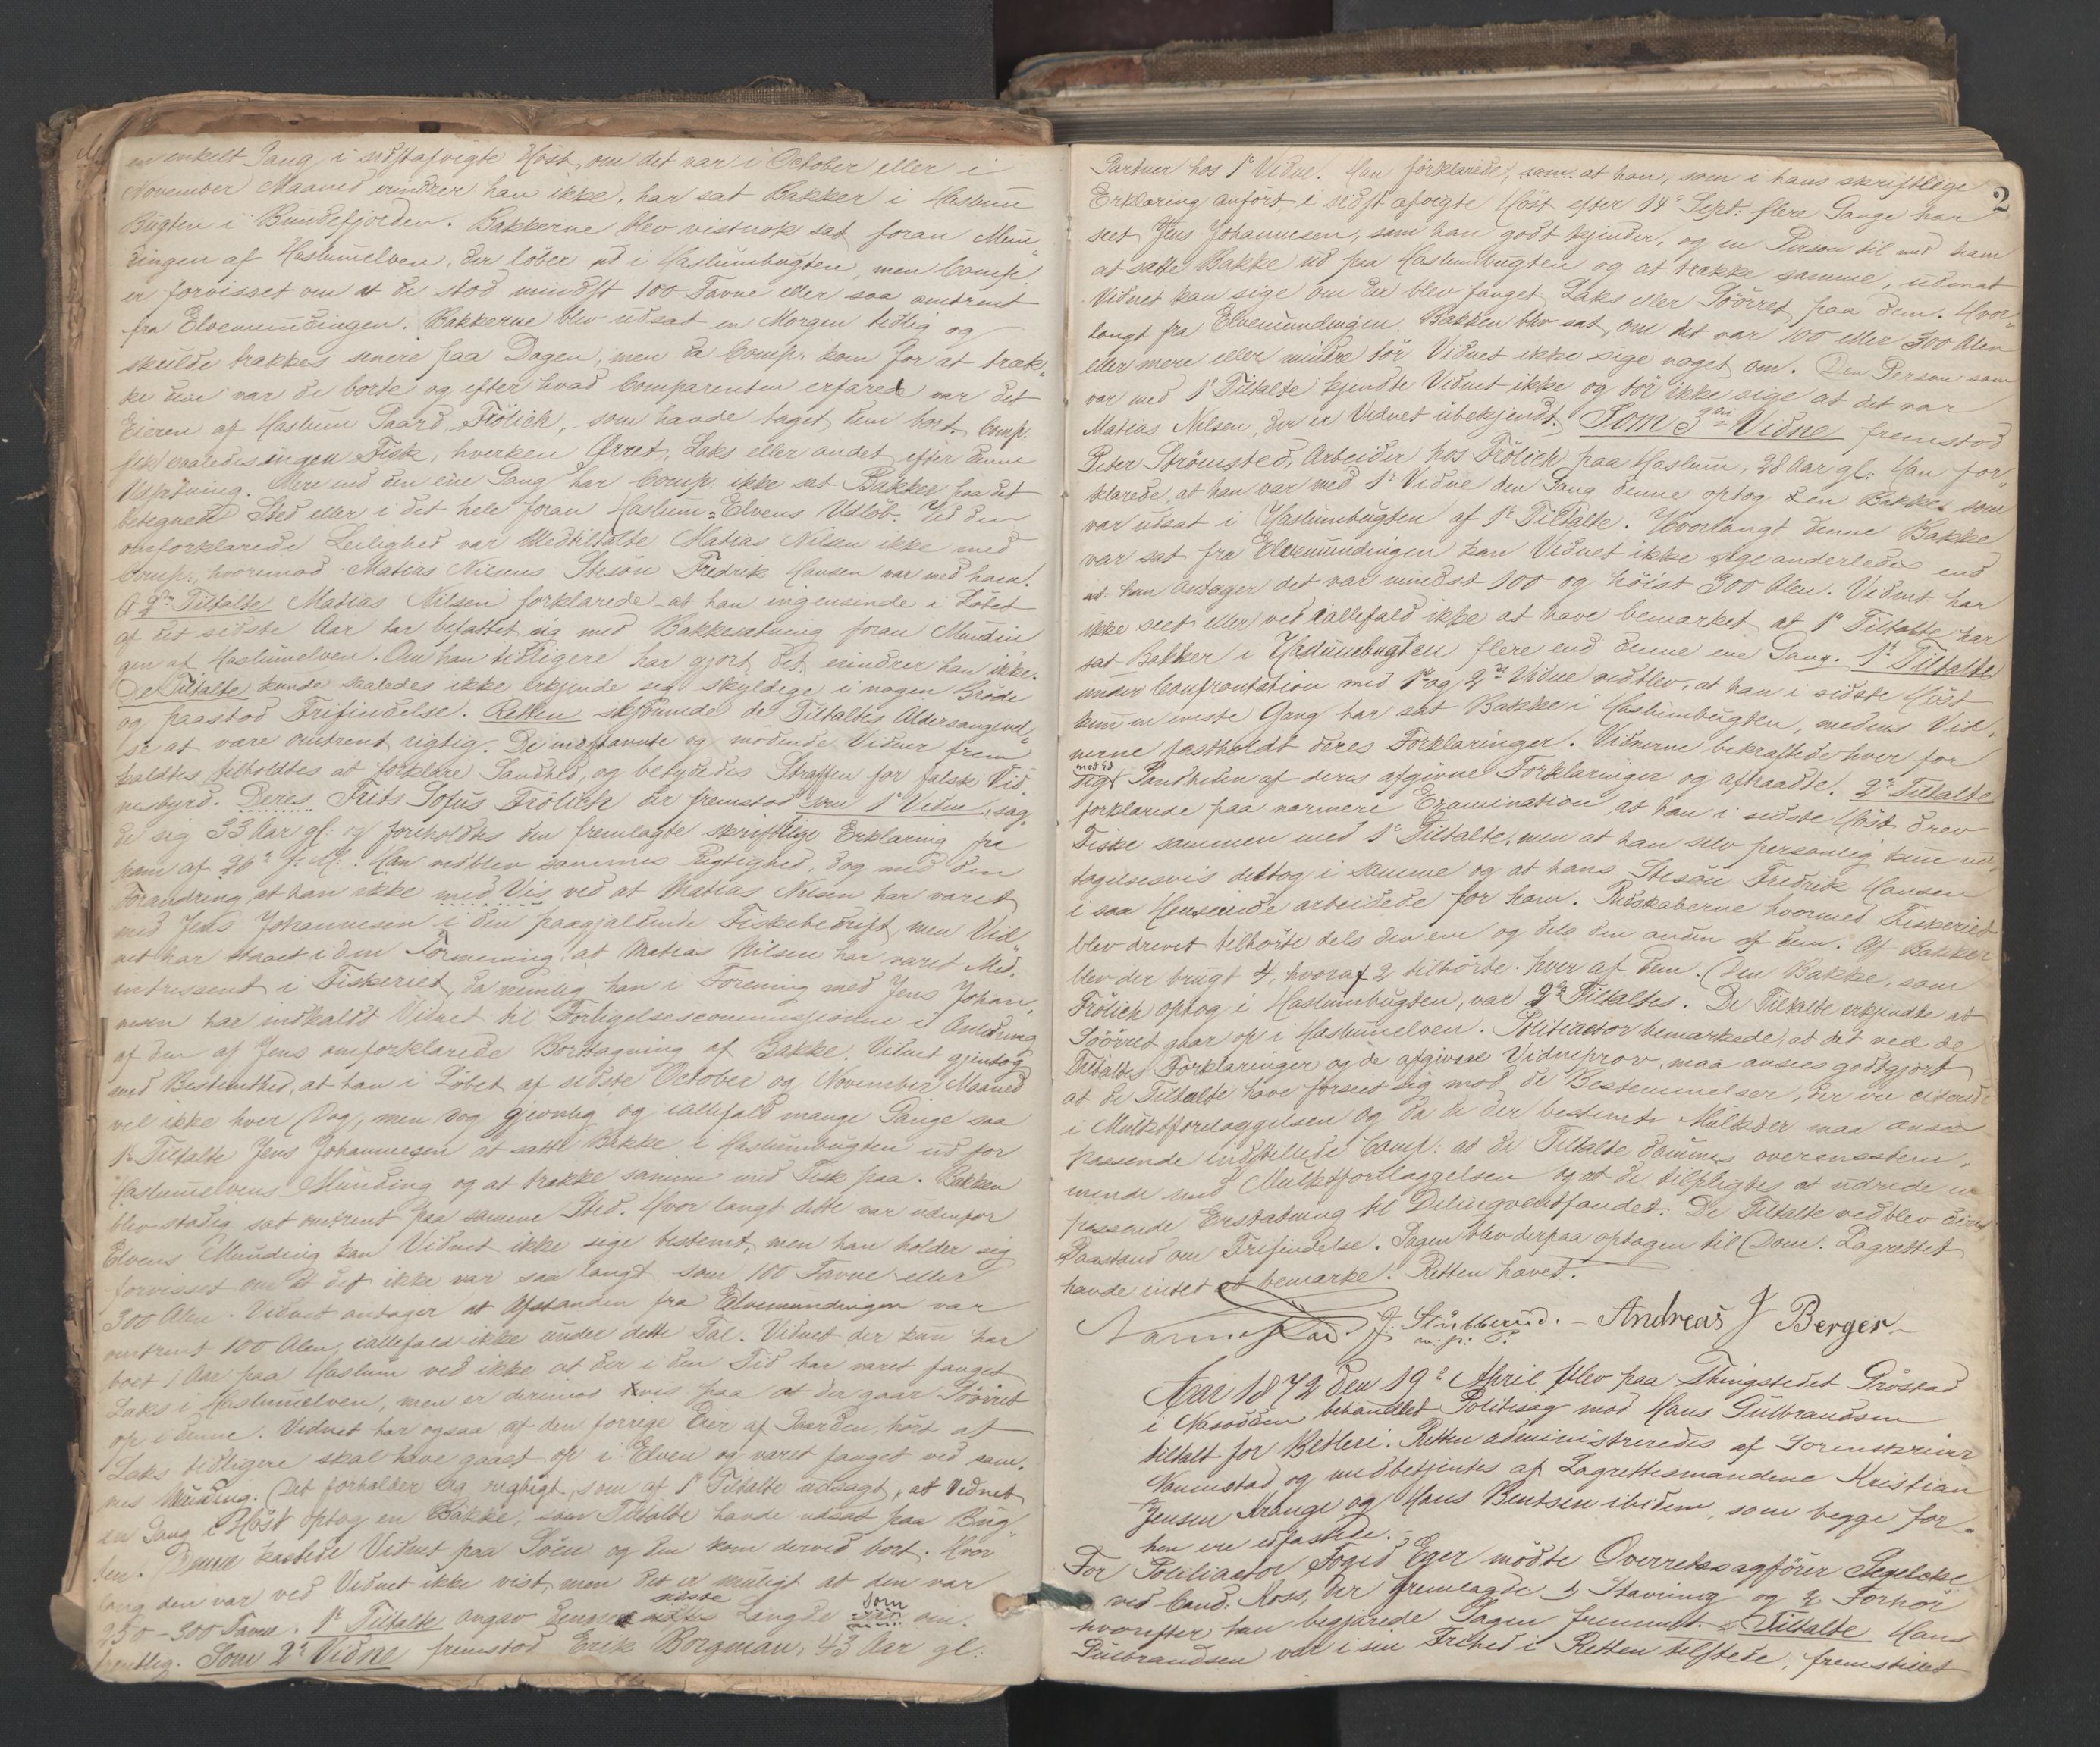 en enkelt Gang i sidstafvigte Höst, om det var i October eller i
November Maaned erindrer han ikke, har sat Bakker i Haslum
Bugten i Bundefjorden. Bakkerne blev vistnok sat foran Mun„
dingen af Haslumelven, der löber ud i Haslumbugten, men Comp.
er forvisset om at de stod mindst 100 Favne eller saa omtrent
fra Elvemundingen. Bakkerne blev udsat en Morgen tidlig og
skulde trækkes senere paa Dagen, men da Comp. kom for at træk„
ke dem var de borte og efter hvad Comparenten erfarede var det
Eieren af Haslum Gaard, Frölich, som havde taget dem bort. Comp.
fik saaledes ingen Fisk, hverken Ørret, Laks eller andet efter denne
Udsætning. Mere end den ene Gang har Comp. ikke sat Bakker paa det
betegnede Sted eller i det hele foran Haslum-Elvens Udlöb. Ved den
omforklarede Leilighed var Medtiltalte Matias Nilsen ikke med
Comp., hvorimod Matias Nilsens Stesön Fredrik Hansen var med ham.
2den Tiltalte Matias Nilsen forklarede at han ingensinde i Löbet
af det sidste Aar har befattet sig med Bakkesætning foran Mundin
gen af Haslumelven. Om han tidligere har gjort det erindrer han ikke.
De Tiltalte kunde saaledes ikke erkjende sig skyldige i nogen Bröde
og paastod Frifindelse. Retten skjönnede de Tiltaltes Aldersangivel„
se at være omtrent rigtig. De indstævnte og mödende Vidner frem„
kaldtes, tilholdtes at forklare Sandhed, og betydedes Straffen for falsk Vid„
nesbyrd. Deres Frits Sofus Frölich der fremstod som 1ste Vidne, sag„
de sig 33 Aar gl. og foreholdtes den fremlagte skriftlige Erklæring fra
ham af 26de f. M. Han vedblev sammes Rigtighed, dog med den
Forandring at han ikke med Vis ved at Matias Nilsen har været
med Jens Johannesen i den paagjældende Fiskebedrift, men Vid„
net har staaet i den Formening, at Matias Nilsen har været Med„
intressent i Fiskeriet, da nemlig han i Forening med Jens Johan„
nesen har indkaldt Vidnet til Forligelsescommissionen i Anledning
af den af Jens omforklarede Borttagning af Bakke. Vidnet gjentog
med Bestemthed, at han i Löbet af sidste October og November Maaned
vel ikke hver Dag, men dog jevnlig og iallefald mange Gange saa
1ste Tiltalte Jens Johannesen at sætte Bakke i Haslumbugten ud for
Haslumelvens Munding og at trække samme med Fisk paa. Bakken
blev stadig sat omtrent paa samme Sted. Hvor langt dette var udenfor
Elvens Munding kan Vidnet ikke sige bestemt, men han holder sig
forvisset om at det ikke var saa langt som 100 Favne eller
300 Alen. Vidnet antager at Afstanden fra Elvemundingen var
omtrent 100 Alen, iallefald ikke under dette Tal. Vidnet der kun har
boet 1 Aar paa Haslum ved ikke at der i den Tid har været fanget
Laks i Haslumelven, men er derimod vis paa at der gaar Söörret
op i denne. Vidnet har ogsaa af den forrige Eier af Gaarden, hört at
Laks tidligere skal have gaaet op i Elven og været fanget ved sam„
mes Munding. Det forholder sig rigtigt, som af 1ste Tiltalte udsagt, at Vidnet
en Gang i Höst optog en Bakke, som Tiltalte havde udsat paa Bug„
ten. Denne kastede Vidnet paa Söen og den kom derved bort. Hvor
lang den var ved Vidnet ikke vist, men det er muligt at den var
250-300 Favne. 1ste Tiltalte angav denne sidste Længde som om„
trentlig. Som 2det Vidne fremstod Erik Borgman, 43 Aar gl.
2
Gartner hos 1ste Vidne. Han forklarede, at han, som i hans skriftlige
Erklæring anfört, i sidst afvigte Höst efter 14de Sept. flere Gange har
seet Jens Johannesen, som han godt kjender, og en Person til med ham
at sætte Bakke ud paa Haslumbugten og at trække samme, uden at
Vidnet kan sige om der blev fanget Laks eller Söörret paa dem. Hvor„
langt fra Elvemundingen Bakken blev sat, om det var 100 eller 300 Alen
eller mere eller mindre tör Vidnet ikke sige noget om. Den Person som
var med 1ste Tiltalte kjendte Vidnet ikke og tör ikke sige at det var
Matias Nilsen, der er Vidnet ubekjendt. Som 3die Vidne fremstod
Peter Strömsted, Arbeider hos Frölich paa Haslum, 28 Aar gl. Han for„
klarede, at han var med 1ste Vidne den Gang denne optog den Bakke som
var udsat i Haslumbugten af 1ste Tiltalte. Hvorlangt denne Bakke
var sat fra Elvemundingen kan Vidnet ikke sige anderledes end
at han antager det var mindst 100 og höist 300 Alen. Vidnet har
ikke seet eller ved iallefald ikke at have bemærket at 1ste Tiltalte har
sat Bakker i Haslumbugten flere end denne ene Gang. 1ste Tiltalte
under Confrontation med 1ste og 2det Vidne vedblev, at han i sidste Höst
kun en eneste Gang har sat Bakke i Haslumbugten, medens Vid„
nerne fastholdt deres Forklaringer. Vidnerne bekræftede hver for
sig med Ed Sandheden af deres afgivne Forklaringer og aftraadte. 2den Tiltalte
forklarede paa nærmere Examination, at han i sidste Höst drev
Fiske sammen med 1ste Tiltalte, men at han selv personlig kun und„
tagelsesvis deltog i samme og at hans Stesön Fredrik Hansen
i saa Henseende arbeidede for ham. Redskaberne hvormed Fiskeriet
blev drevet tilhörte dels den ene og dels den anden af dem. Af Bakker
blev der brugt 4, hvoraf 2 tilhörte hver af dem. Den Bakke, som
Frölich optog i Haslumbugten, var 2den Tiltaltes. De Tiltalte erkjendte at
Söörret gaar op i Haslumelven. Politiactor bemærkede, at det ved de
Tiltaltes Forklaringer og de afgivne Vidneprov, maa ansees godtgjort
at de Tiltalte have forseet sig mod de Bestemmelser, der ere citerede
i Mulktforelæggelsen og da de der bestemte Mulkter maa ansees
passende indstillede Comp. at de Tiltalte dömmes overensstem„
mende med Mulktforelæggelsen og at de tilpligtes at udrede en
passende Erstatning til Delinqventfondet. De Tiltalte vedblev sin
Paastand om Frifindelse. Sagen blev derpaa optagen til Dom. Lagrettet
havde intet at bemærke. Retten hævet.
Nannestad. J. Stubberud. – Andreas J Berger –
m. p. P.
Aar 1872 den 19de April blev paa Thingstedet Gröstad
i Nesodden behandlet Politisag mod Hans Gulbrandsen
tiltalt for Betleri. Retten administreredes af Sorenskriver
Nannestad og medbetjentes af Lagrettesmændene Kristian
Jensen Krange og Hans Bentsen ibidem, som begge for„
hen ere edfæstede. –
For Politiactor Foged Eger mödte Overretssagförer Segelcke
ved Cand. Ross, der fremlagde 1 Stævning og 2 Forhör
hvorefter han begjærede Sagen fremmet. Tiltalte Hans
Gulbrandsen var i sin Frihed i Retten tilstede, fremstillet